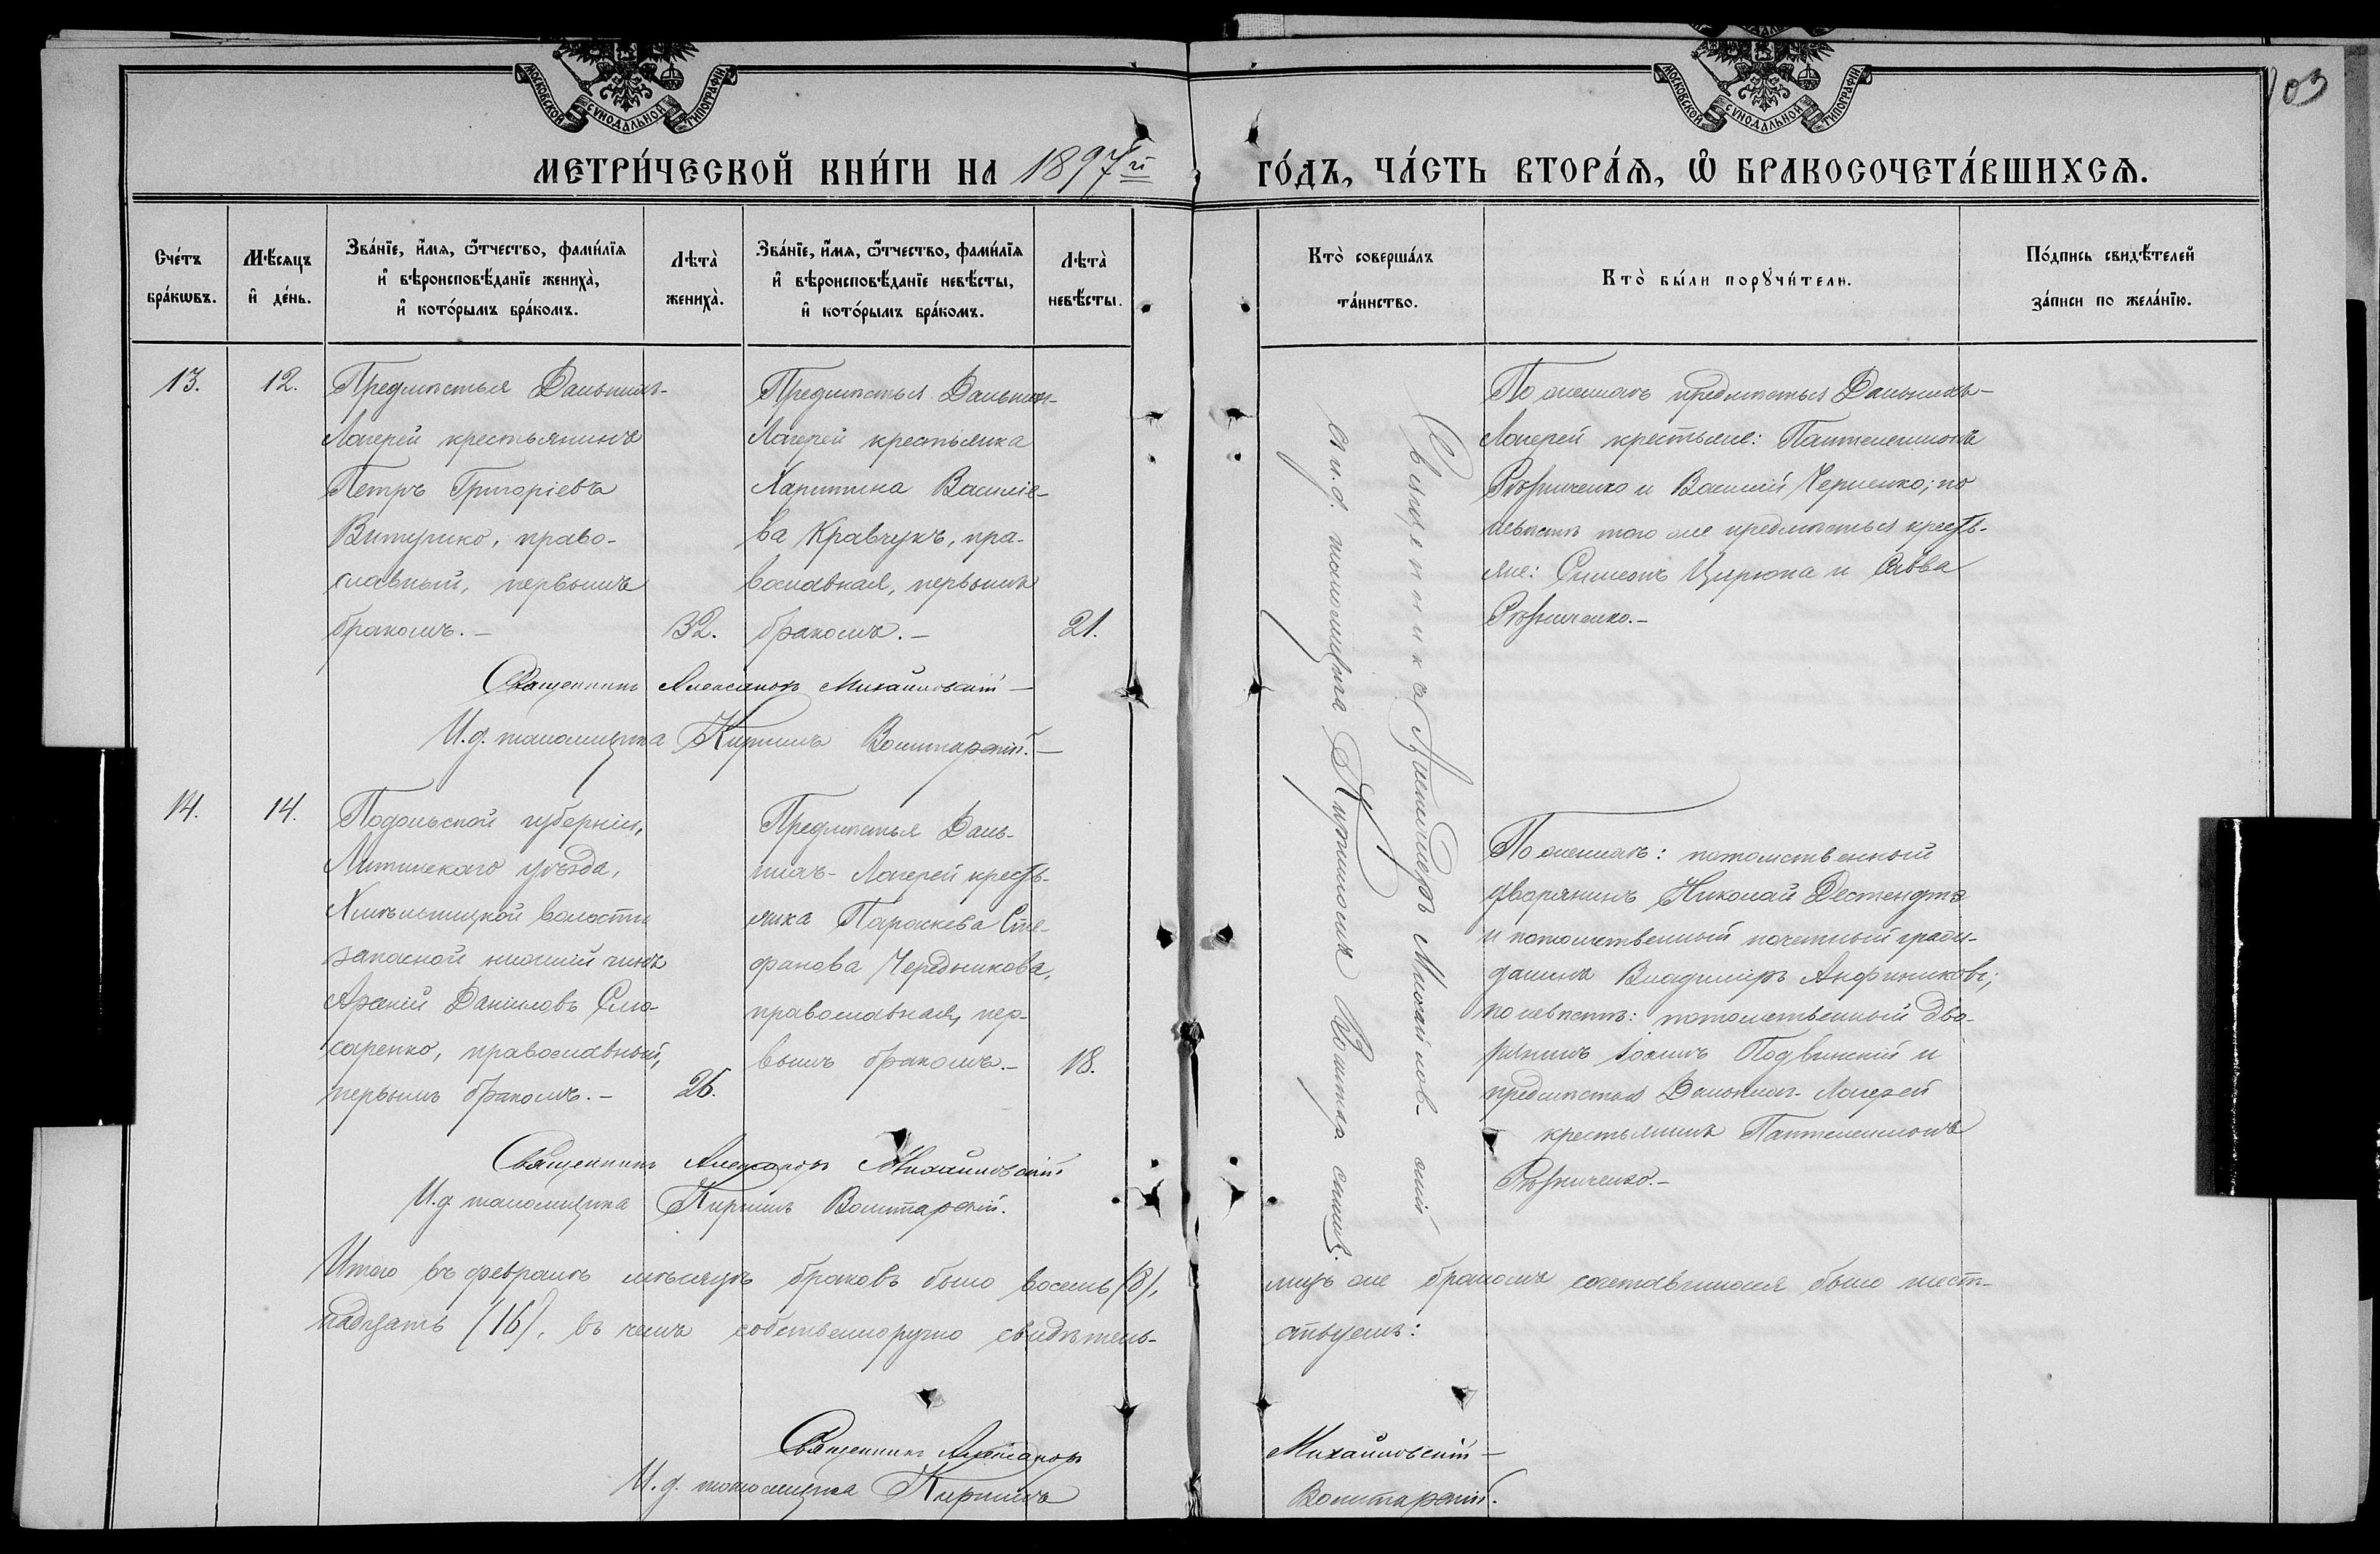 МОСКОВСКОЙ СѴНОДАЛЬНОЙ ТИПОГРАФІИ
МОСКОВСКОЙ СѴНОДАЛЬНОЙ ТИПОГРАФІИ
103
МЕТРИ́ЧЕСКОЙ КНИ́ГИ НА 1897й
ГО́ДЪ, ЧА́СТЬ ВТОРА́Ѧ, Ѽ БРАКОСОЧЕТА́ВШИХСѦ.
Сче́тъ бра́кѡвъ.
Мѣ́сяцъ и҆ де́нь.
Зва́нїе, и҆́мя, ѻ҆́тчество, фами́лїя
и҆ вѣроисповѣ́данїе жениха̀,
и҆ кото́рымъ бра́комъ.
Лѣта̀ жениха̀.
Зва́нїе, и҆́мя, ѻ҆́тчество, фами́лїя
и҆ вѣроисповѣ́данїе невѣ́сты,
и҆ кото́рымъ бра́комъ.
Лѣта̀ невѣ́сты.
Кто̀ соверша́лъ та́инство.
Кто̀ бы́ли порꙋчи́тели.
По́дпись свидѣ́телей за́писи по жела́нїю.
13.
12.
Предмѣстья Дальнихъ-
Лагерей крестьянинъ
Петръ Григоріевъ
право-
славный, первымъ
бракомъ.-
32.
Предмѣстья Дальнихъ-
Лагерей крестьянка
Харитина Василіе-
ва Кравчукъ, пра-
вославная, первымъ
бракомъ.-
21.
Священникъ Александръ Михайловскій-
И. д. псаломщика Кириллъ Волтарскій.-
Священникъ Александръ Михайловскій
и и. д. псаломщика Кириллъ
По женихѣ предмѣстья Дальнихъ-
Лагерей крестьяне: Пантелеимонъ
Рѣзниченко и Василій Черненко; по
невѣстѣ того же предмѣстья кресть-
яне: Симеонъ Цирюпа и Савва
Рѣзниченко.-
14.
14.
Подольской губерніи,
Литинскаго уѣзда,
Хмѣльницкой волости
запасной нижній чинъ
Даніиловъ Слю-
саренко, православный,
первымъ бракомъ.-
26.
Предмѣстья Даль-
нихъ-Лагерей кресть-
янка Параскева Сте-
фанова Чередникова,
православная, пер-
вымъ бракомъ.-
18.
По женихѣ: потомственный
дворянинъ Николай
и потомственный почетный граж-
данинъ Владиміръ
по невѣстѣ: потомственный дво-
рянинъ Іоаннъ Подвинскій и
предмѣстья Дальнихъ-Лагерей
крестьянинъ Пантелеимонъ
Рѣзниченко.-
Священникъ Александръ Михайловскій
И. д. псаломщика Кириллъ Волтарскій.
Итого въ февралѣ мѣсяцѣ браковъ было восемь (8), лицъ же бракомъ сочетавшихся было шест-
надцать (16), въ чемъ собственноручно свидѣтель- ствуемъ:
Священникъ Александръ Михайловскій-
И. д. псаломщика Кириллъ Волтарскій.